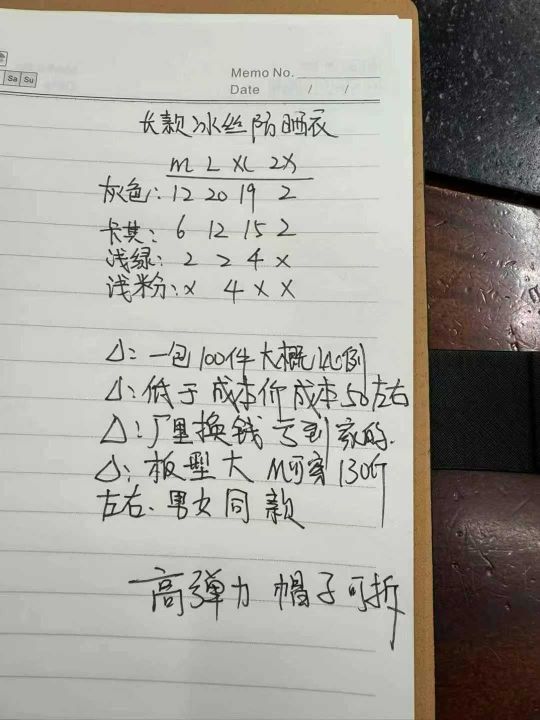 Sa Su
Memo No.
Date / /
长款冰丝防晒衣
M L XL 2X
灰色: 12 20 19 2
卡其: 6 12 15 2
浅绿: 2 2 4 x
浅粉: x 4 x x
△: 一包100件大概比例
△: 低于成本价成本50左右
△: 厂里换钱亏到家的.
△: 板型大 M可穿130斤
左右. 男女同款
高弹力 帽子可拆